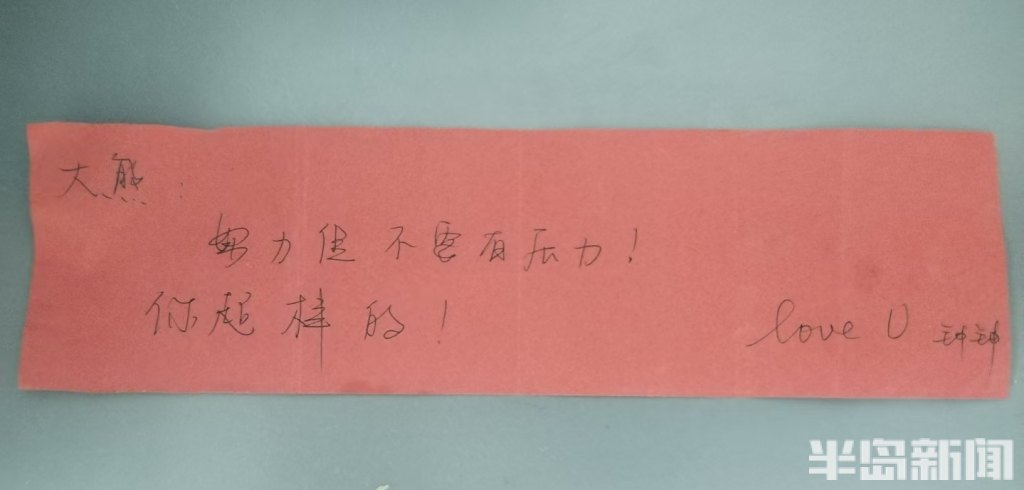 大熊:
努力但不要有压力!
你超棒的!
love U 钟钟
半岛新闻